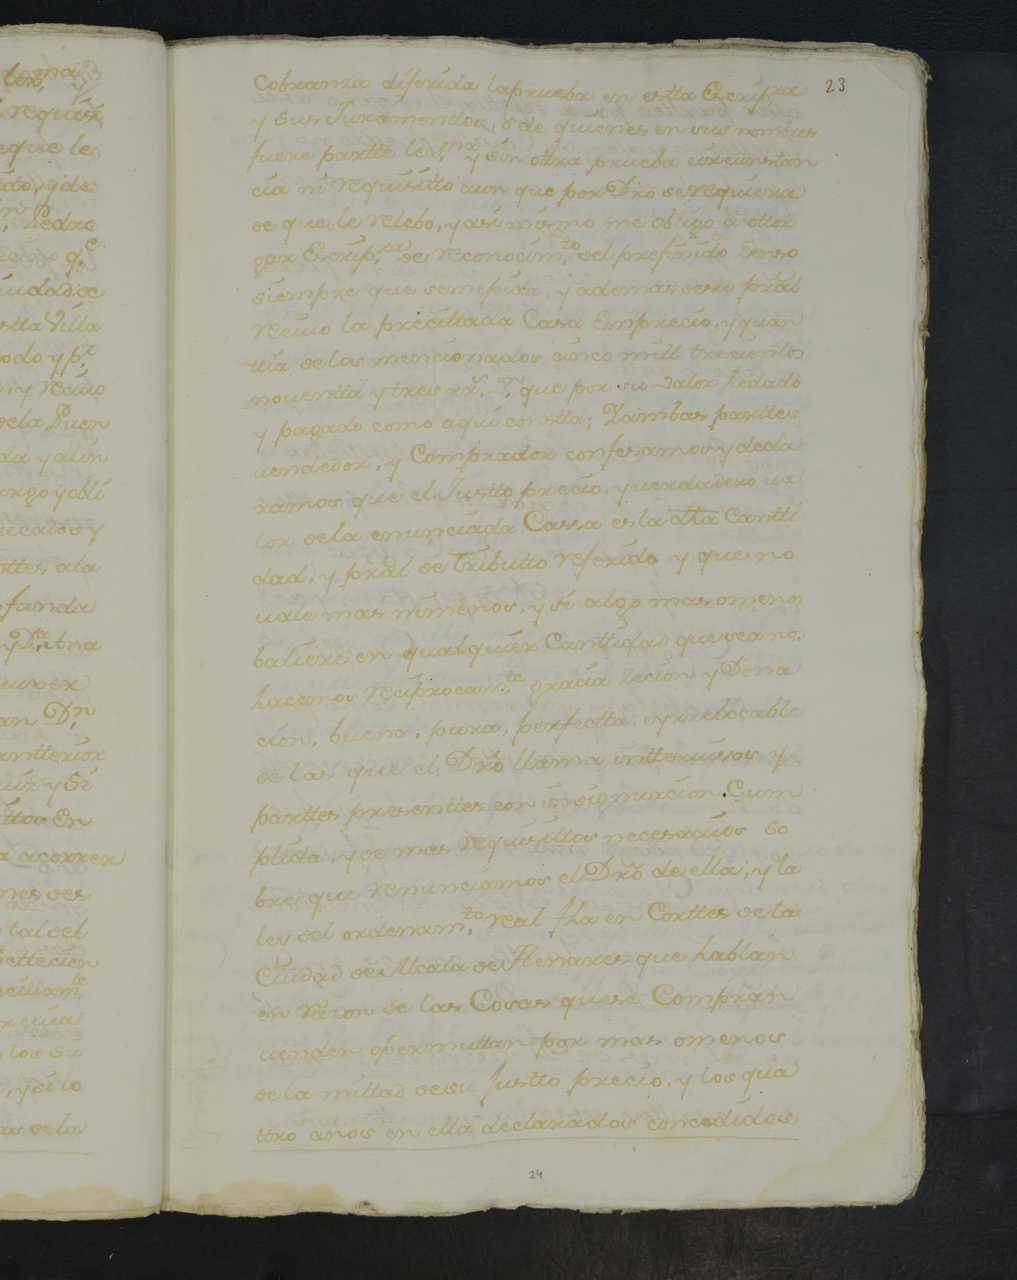 23
Cobranza diferida la prueba en estta Escrip.ra
y sus Juramenttos, ó de quienes en sus nombres
fuere partte lex.ma y sin ottra prueba circunstan
cia ni requisitto aun que por Dro se requiera
de que le relebo, y asi mismo me obligo á ottor
gar Escrip.ra de reconocim.to del preferido Censo
siempre que se me pida, y ademas de su pral
reciuo la precittada Casa en precio, y quan
ttia de los mencionados cinco mill trescientos
nouentta y tres rr.s Vn que por su valor he dado
y pagado como aqui constta; Y ambas parttes
uendedor, y Comprador confesamos y decla
ramos que el Justto precio, y uerdadero ua
lor de la enunciada Cassa es la dha Cantti
dad, y pral de Tributto referido y que no
uale mas ni menos, y si algo mas o menos
baliere en qualquier Canttidad que sea nos
hacemos reciprocam.te gracia cecion y Dona
cion, buena, pura, perfectta, e yrrebocable
de las que el Dro llama intterviuos y
parttes presenttes con insignuacion Cum
plida, y de mas requisittos necesarios so
bre que renunciamos el Dro de ella, y la
ley del ordenam.to real fha en Corttes de la
Ciudad de Alcala de Henares que hablan
en rason de las Cosas que se Compran
uenden o permuttan por mas o menos
de la mittad de su Justto precio, y los qua
ttro anos en ella declarados concedidos
24